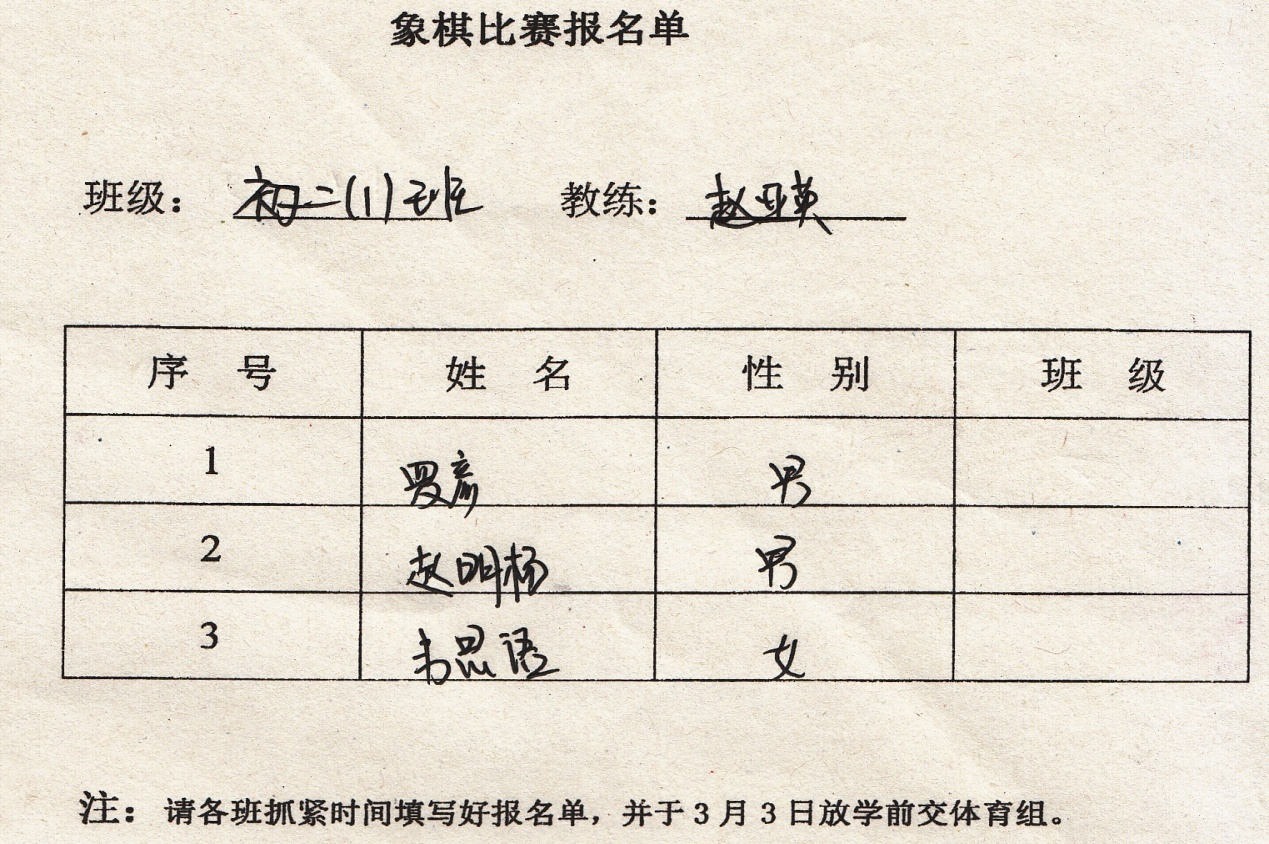 象棋比赛报名单
班级： 初二(1)班 教练： 赵亚英
序 号 姓 名 性 别 班 级
1 罗彦 男
2 赵明杨 男
3 韦思语 女
注：请各班抓紧时间填写好报名单，并于 3 月 3 日放学前交体育组。